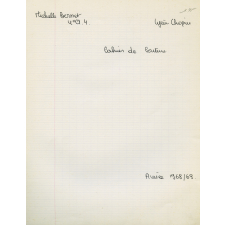 Michelle Bonnet
4e M. 4
Lycée Chopin
Cahier de Couture
Année 1968/69